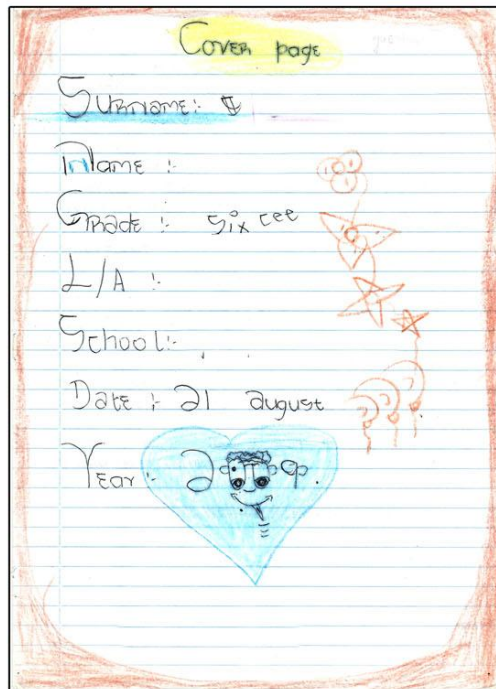 Cover page
Surname:-
Name :-
Grade :- six cee
L/A :-
School:-
Date :- 21 august
Year :- 2009.